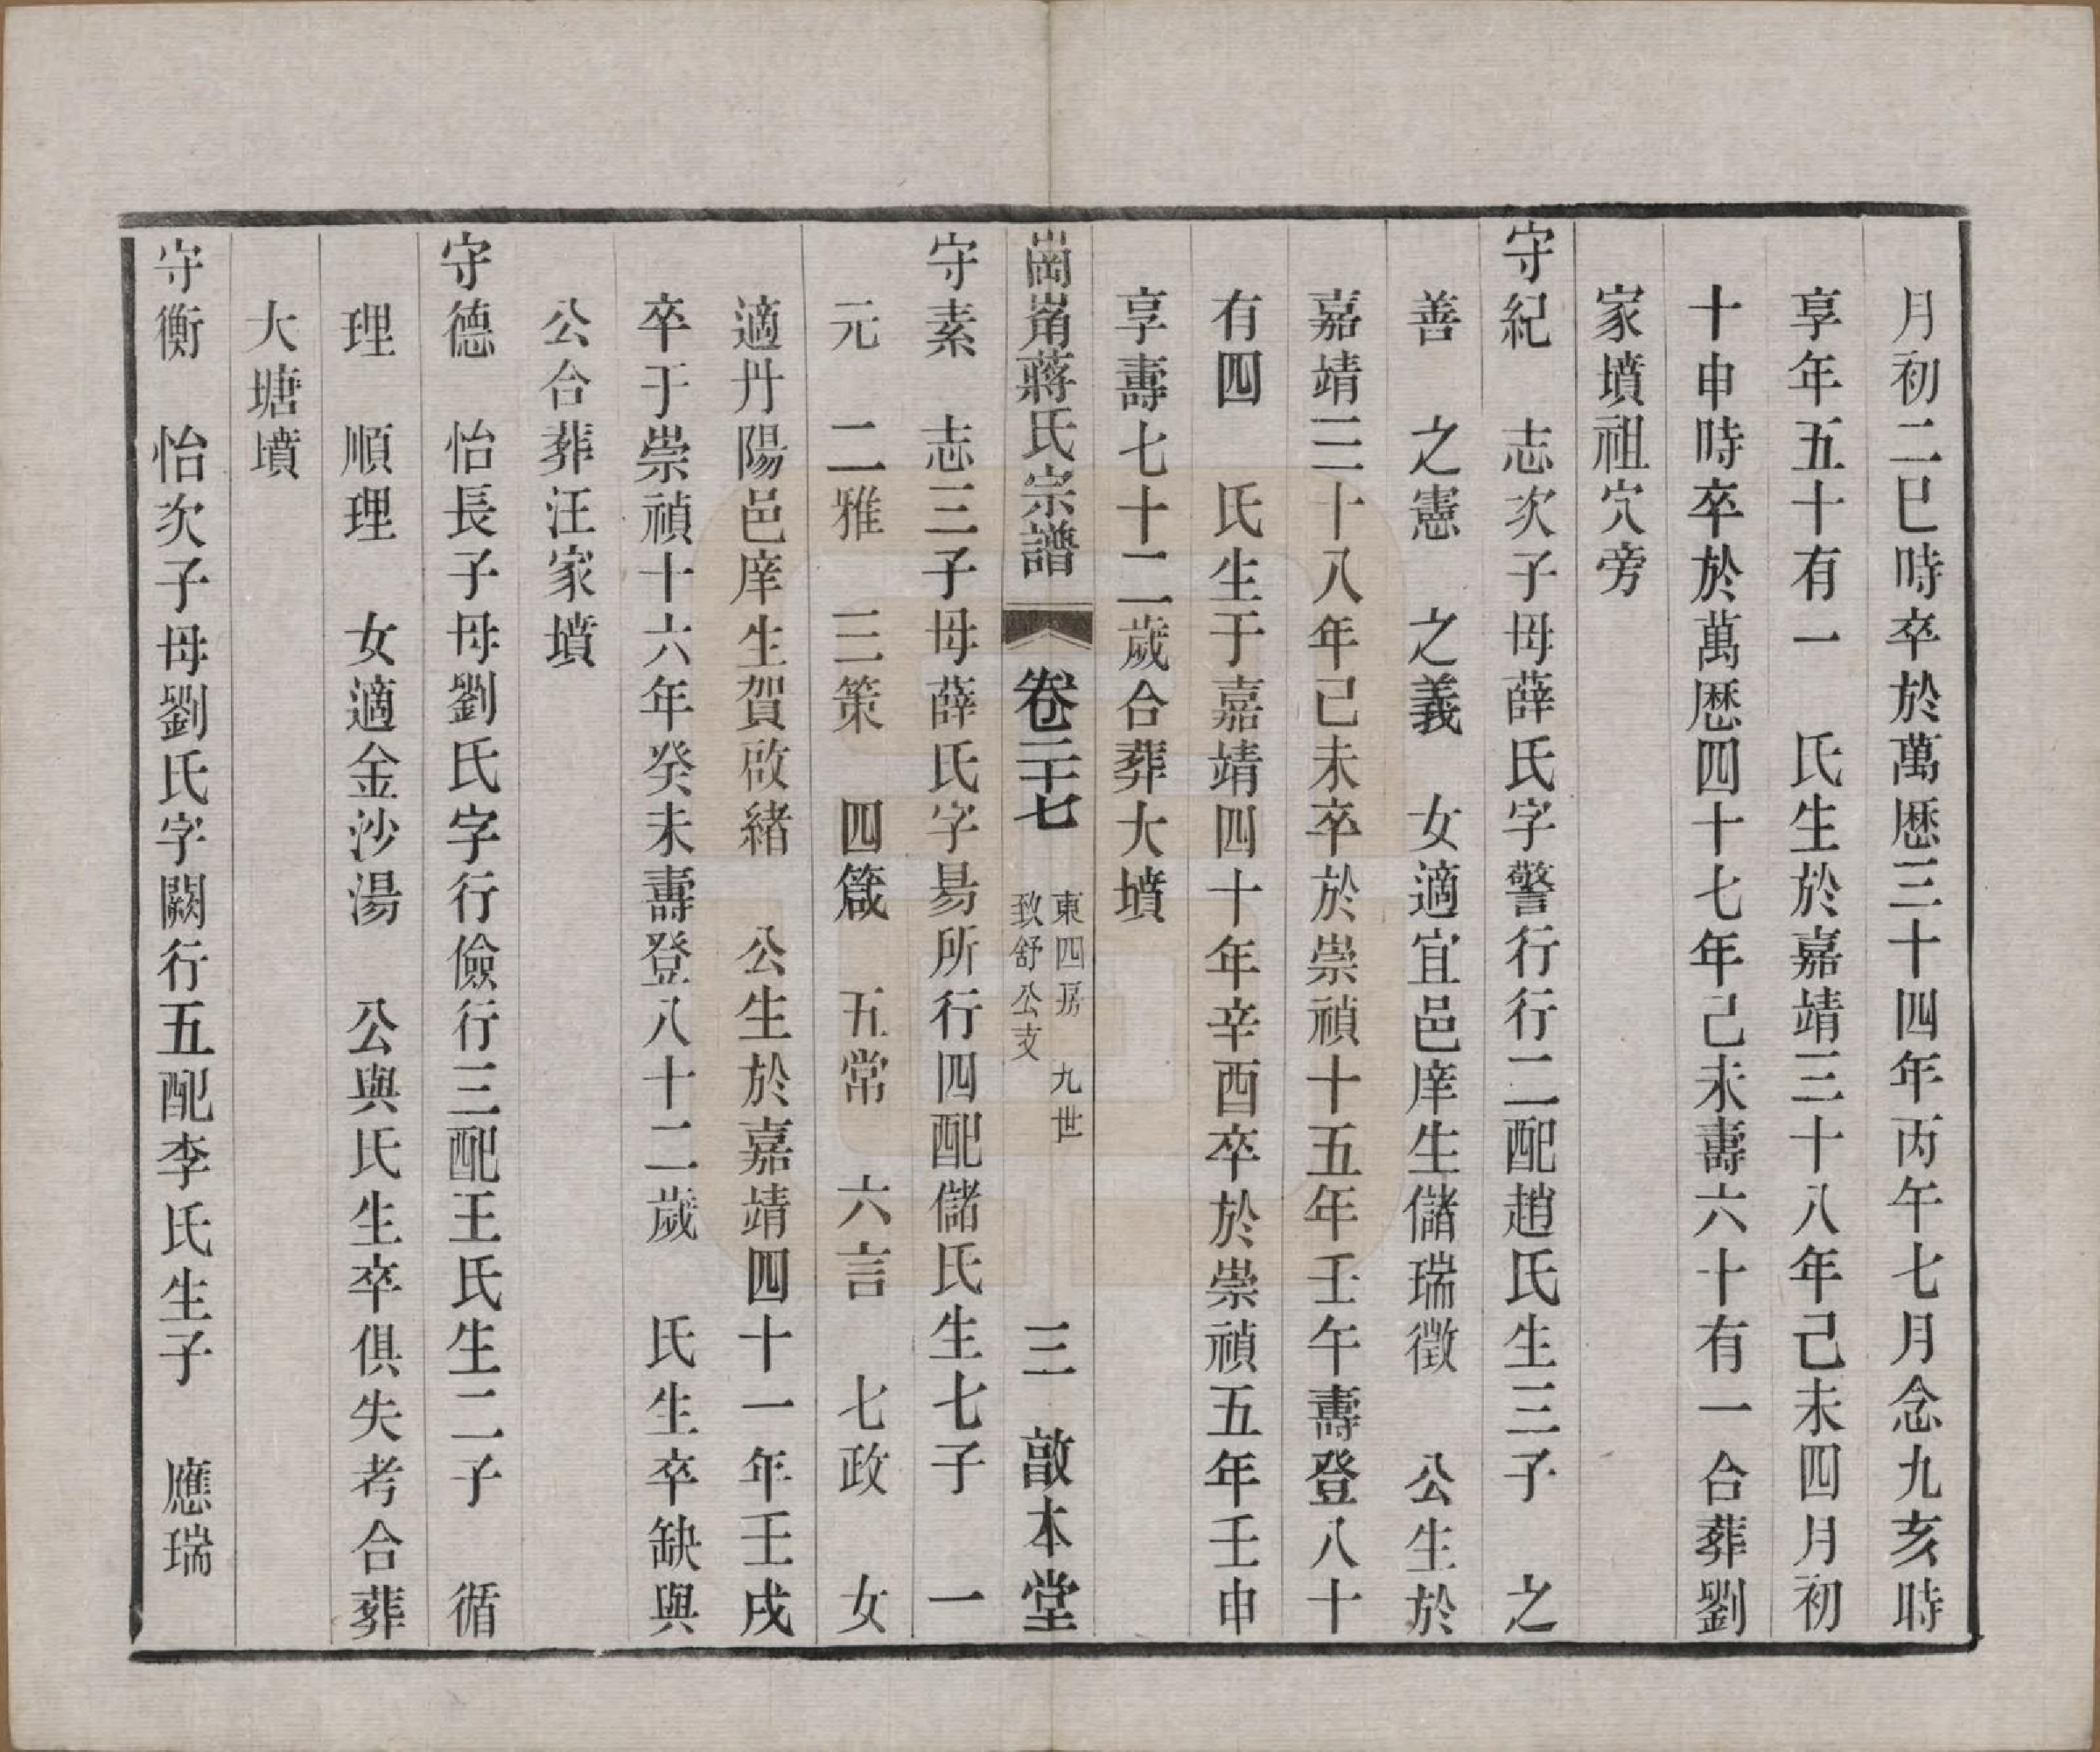 月初二巳時卒於萬歴三十四年丙午七月念九亥時
享年五十有一　氏生於嘉靖三十八年己未四月初
十申時卒於萬歴四十七年己未壽六十有一合葬劉
家墳祖穴旁
守紀　志次子母薛氏字警行行二配趙氏生三子　之
善　之憲　之義　女適宜邑庠生儲瑞徵　公生於
嘉靖三十八年己未卒於崇禎十五年壬午壽登八十
有四　氏生于嘉靖四十年辛酉卒於崇禎五年壬申
享壽七十二歲合葬大墳
崗峝蔣氏宗譜　卷二十七　東四房　九世　致舒公支　三　敆本堂
守素　志三子母薛氏字易所行四配儲氏生七子　一
元　二雅　三策　四箴　五常　六言　七政　女
適丹陽邑庠生賀啟緒　公生於嘉靖四十一年壬戌
卒于崇禎十六年癸未壽登八十二歲　氏生卒缺與
公合葬汪家墳
守德　怡長子母劉氏字行儉行三配王氏生二子　循
理　順理　女適金沙湯　公與氏生卒俱失考合葬
大塘墳
守衡　怡次子母劉氏字闕行五配李氏生子　應瑞